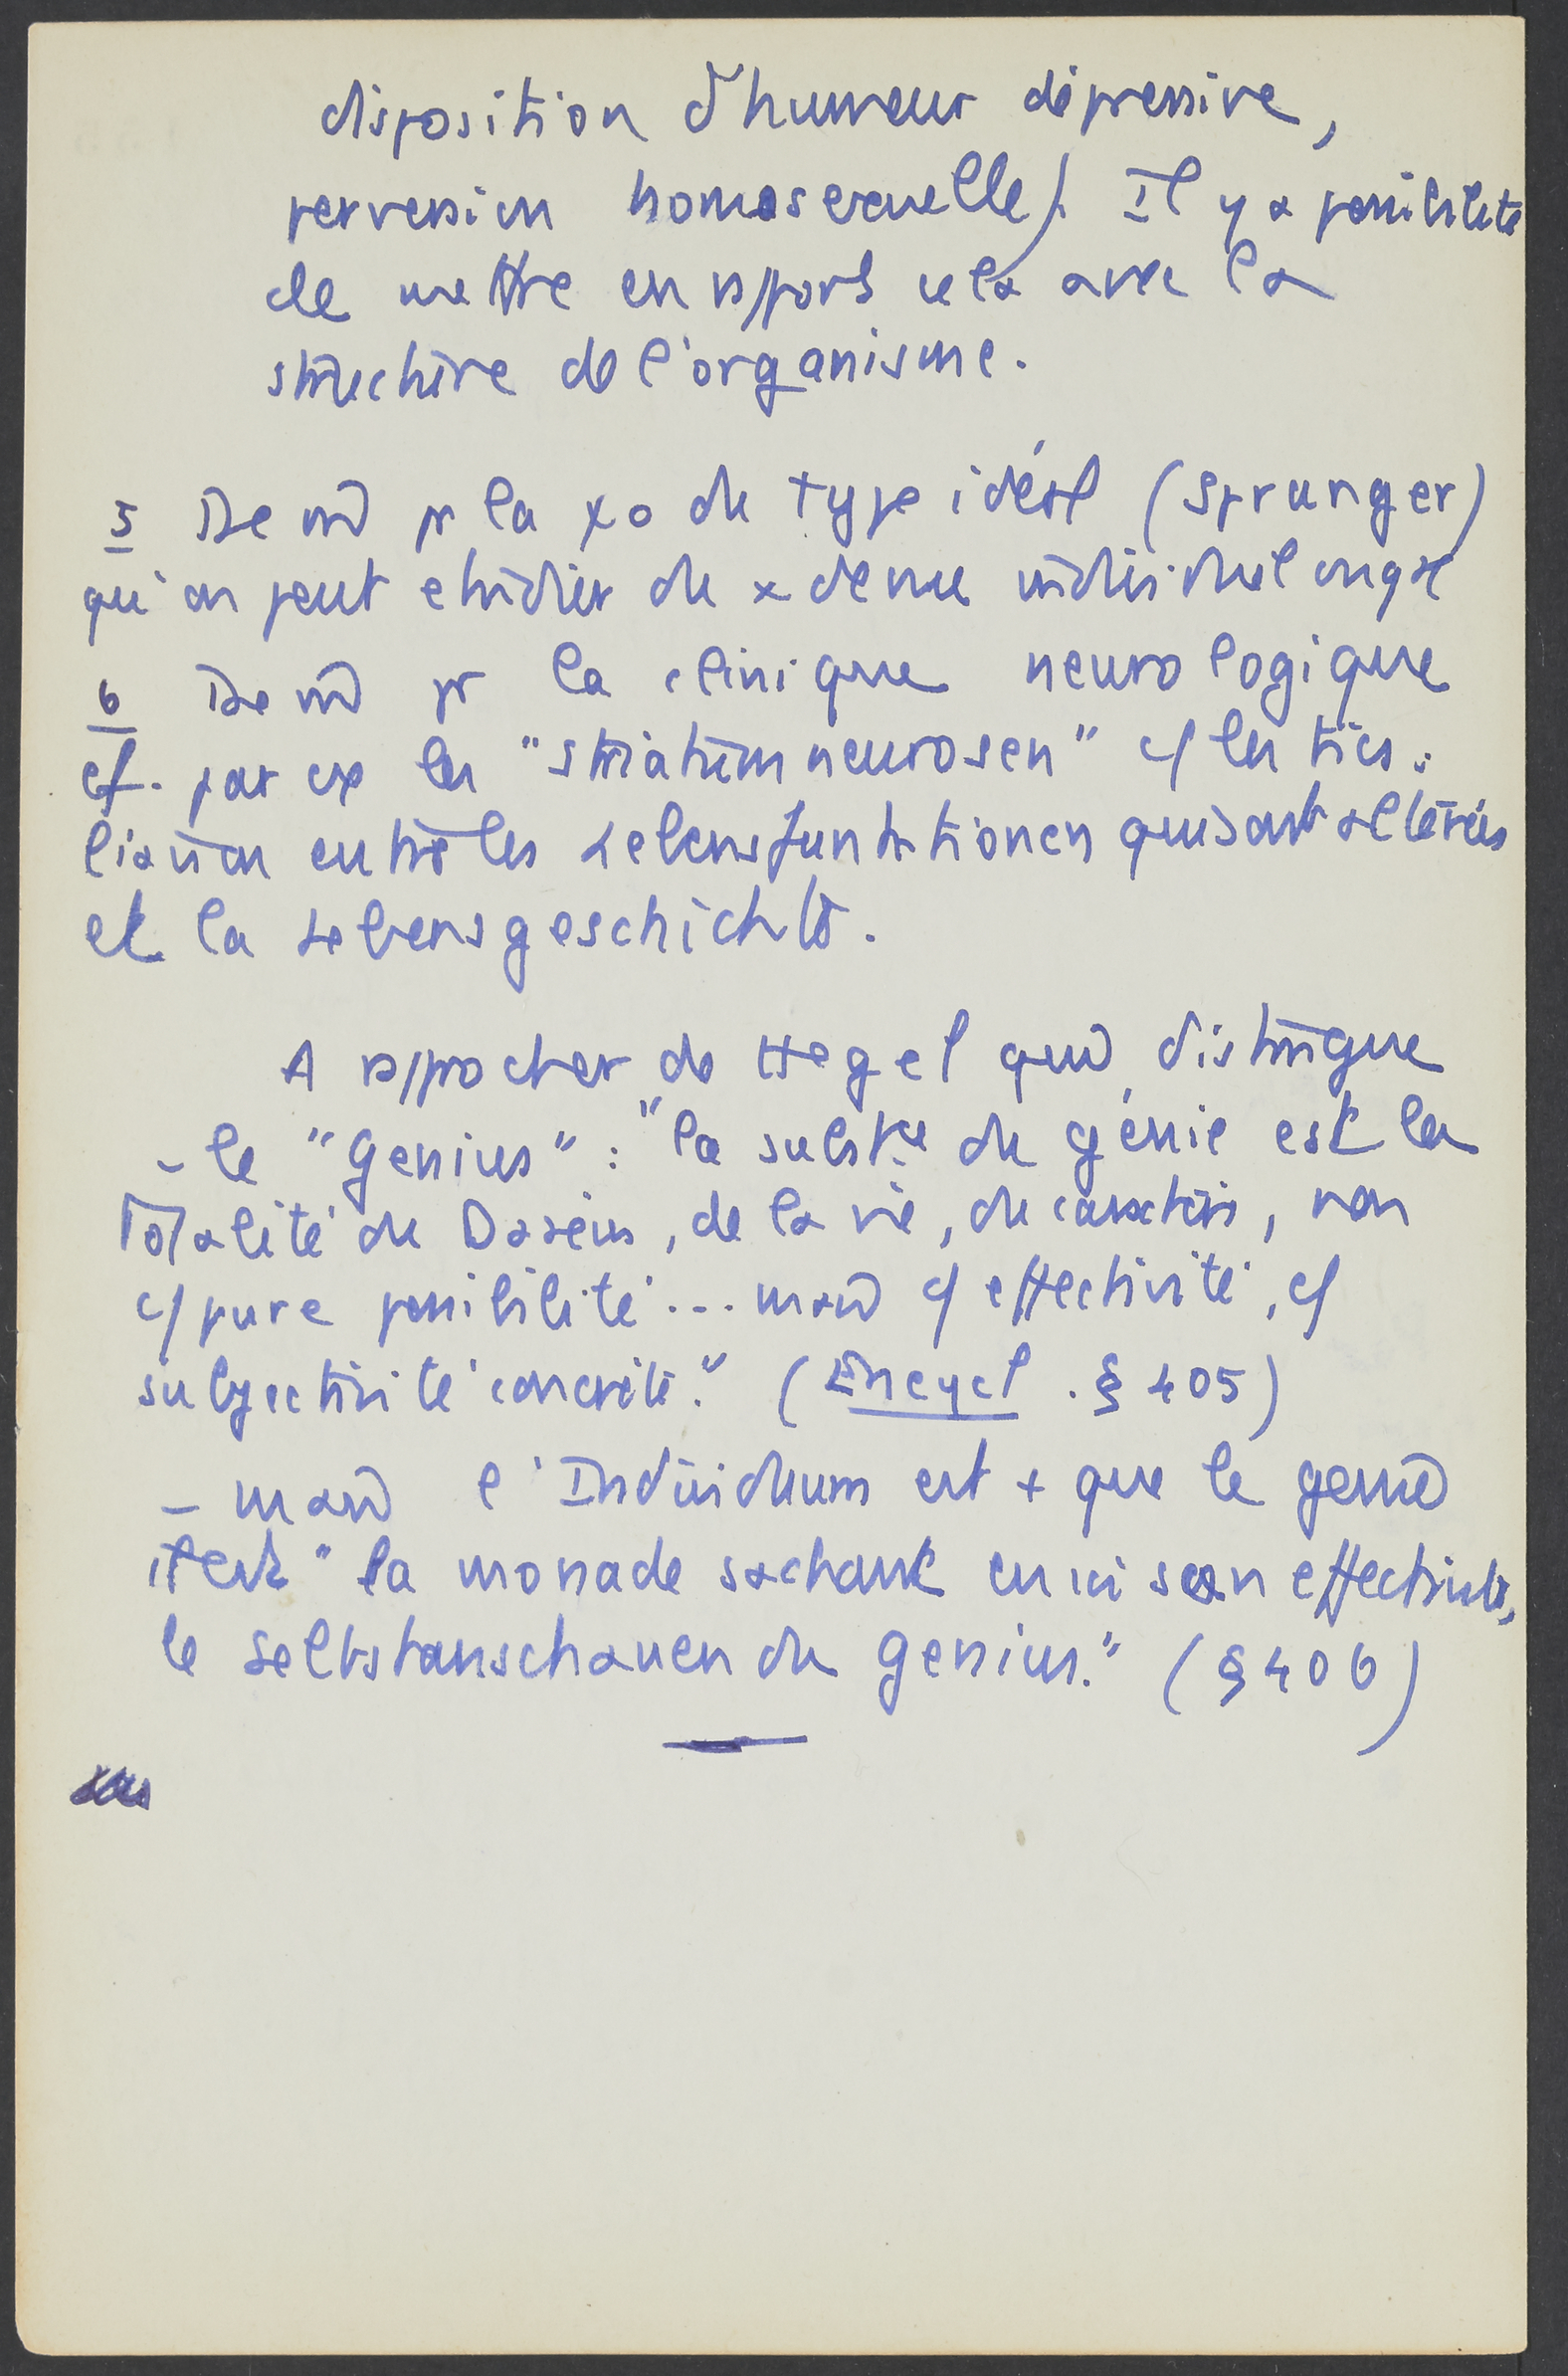 disposition d'humeur dépressive,
perversion homosexuelle). Il y a possibilité
de mettre en rapport cela avec la
structure de l'organisme.
5 De m̂ pr la ψo du type idéal (Spranger)
qu'on peut étudier du
6 De m̂ pr la clinique neurologique
cf. par ex les "striatum neurosen" c/ les tics :
liaison entre les Lebensfunktionen qui sont altérées
et la Lebensgeschichte.
A rapprocher de Hegel qui distingue
- le "Genius" : "la substce du génie est la
Totalité du Dasein, de la vie, du caractère, non
c/ pure possibilité ... mais c/ effectivité, c/
subjectivité concrète." (Encycl. § 405)
- mais l'Individuum est + que le genie
il est "la monade sachant en soi son effectivité,
le Selbstanschauen du Genius." (§ 406)